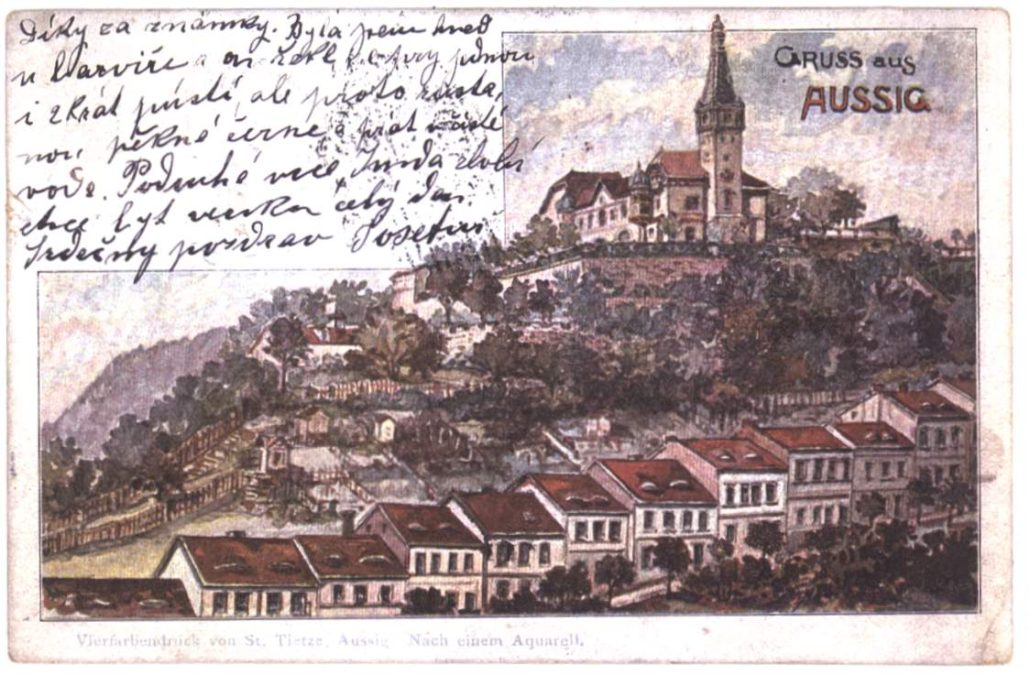 Díky za známky. Byla jsem hned
u barvíře a on řekl že prvy jednou
i 2krát pustí, ale proto zůsta,
nou pěkné černé, a prát v čisté
vodě. Podruhé více,
chce být venku celý den.
Srdečný pozdrav
GRUSS aus
AUSSIG
Vierfarbendruck von St. Tietze, Aussig Nach einem Aquarell.